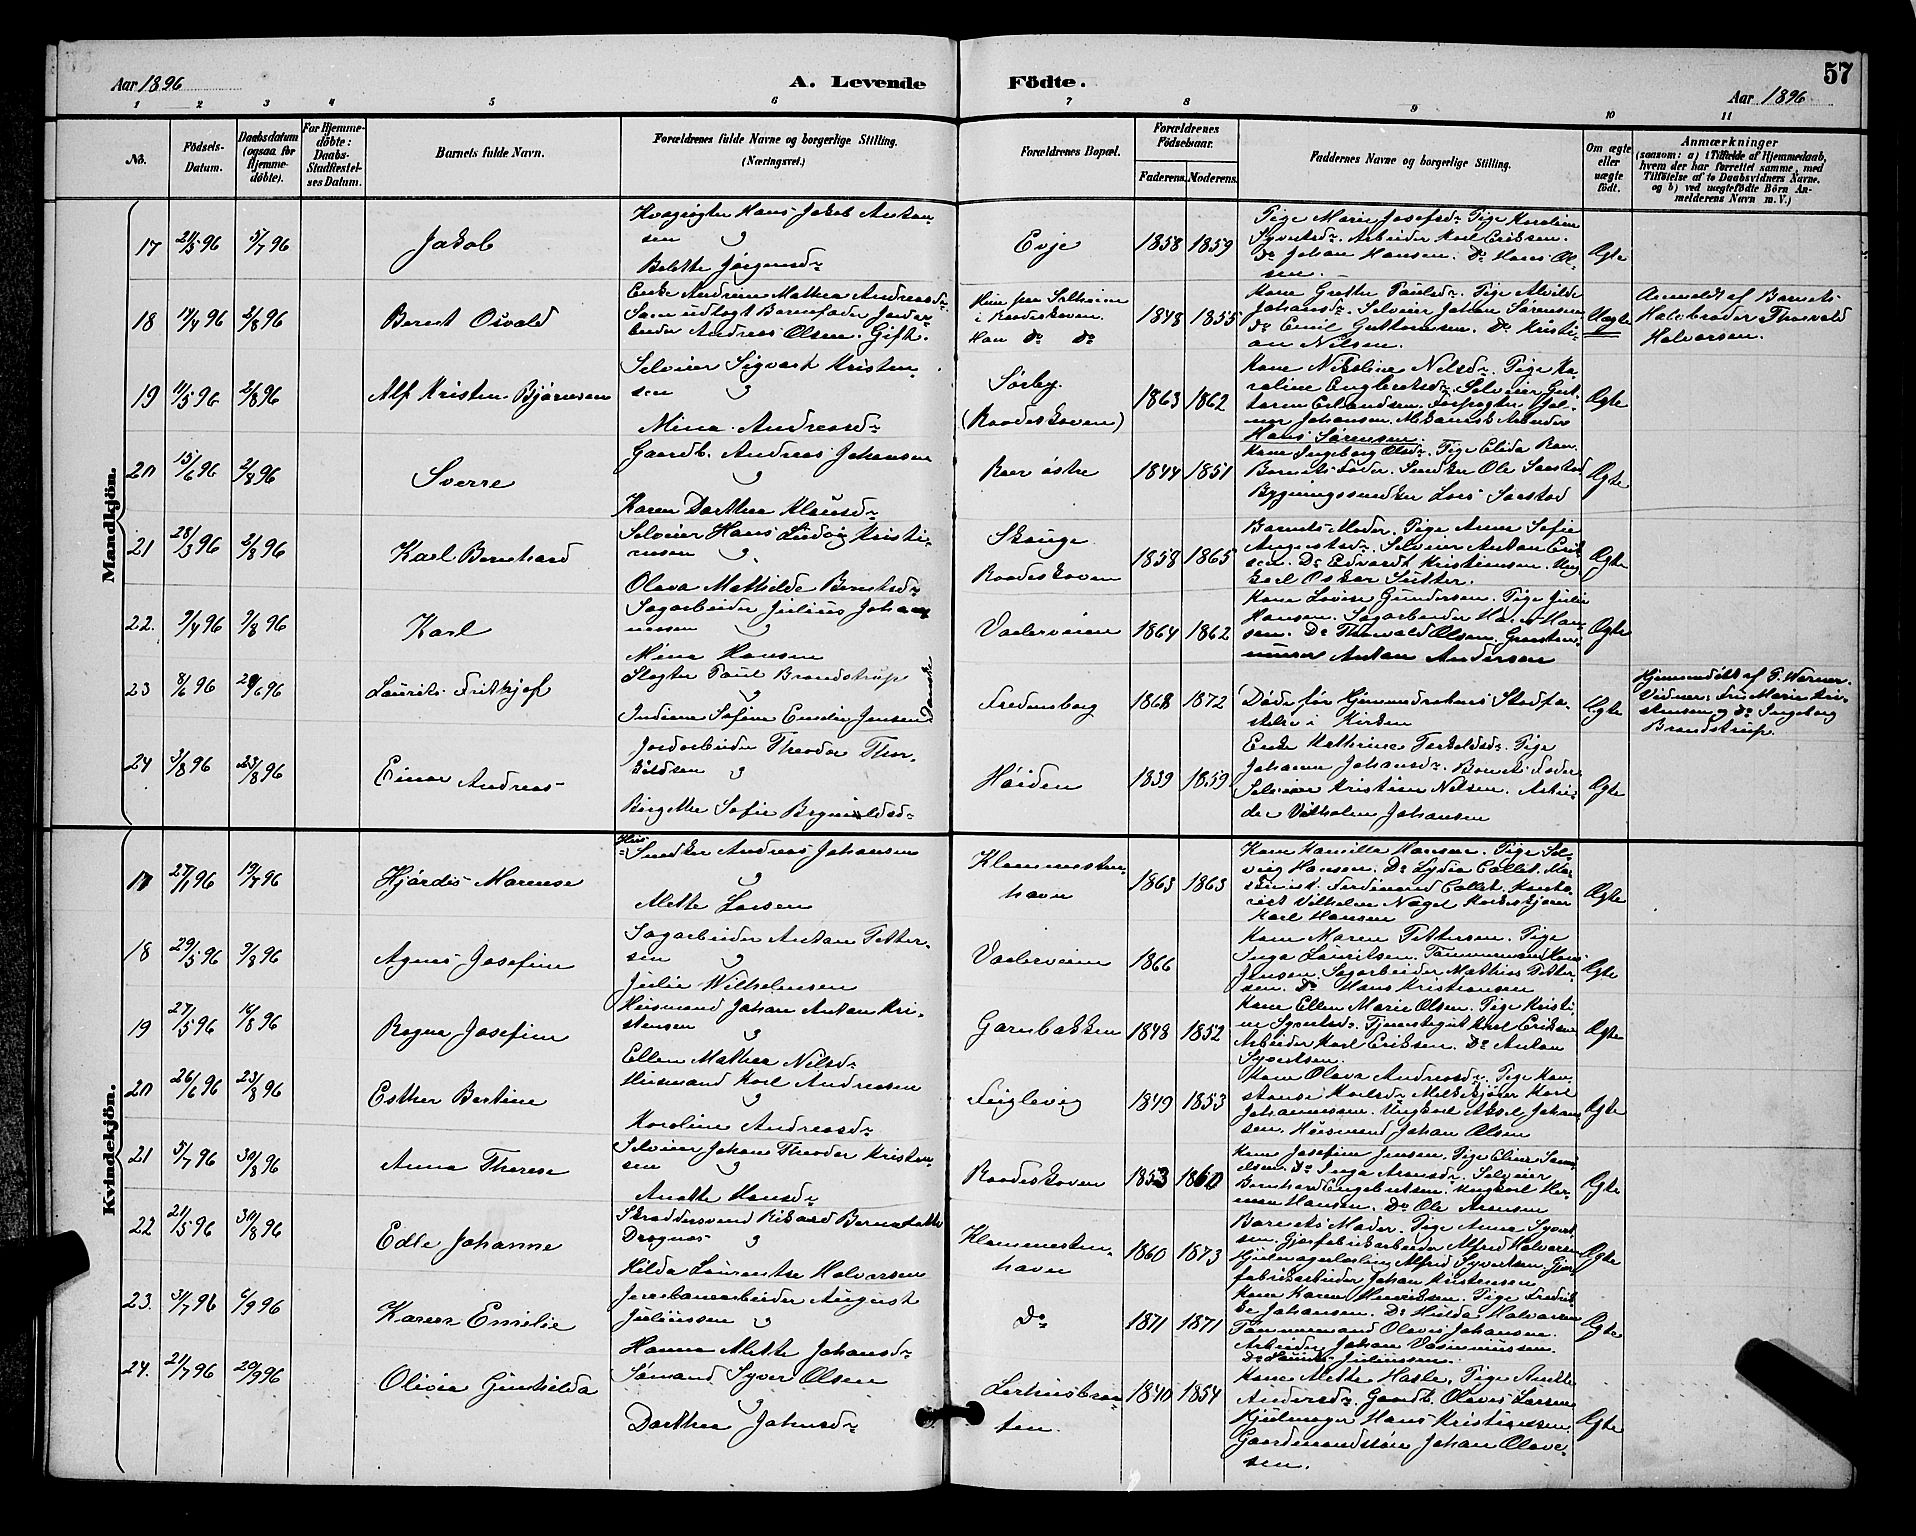 57
Aar 1896
A. Levende
Födte.
Aar 1896
1 2 3 4 5 6 7 8 9 10 11
No.
Födsels-
Datum.
Daabsdatum
(ogsaa for
Hjemme-
döbte).
For Hjemme-
döbte:
Daabs-
Stadfæstel-
ses Datum.
Barnets fulde Navn.
Forældrenes fulde Navne og borgerlige Stilling.
(Næringsvei.)
Forældrenes Bopæl.
Forældrenes
Födselsaar.
Faderens. Moderens.
Faddernes Navne og borgerlige Stilling.
Om ægte
eller
uægte
födt.
Anmærkninger
(saasom: a) i Tilfælde af Hjemmedaab,
hvem der har forrettet samme, med
Tilföielse af to Daabsvidners Navne.
og b) ved uægtefödte Börn An-
melderens Navn m. V.)
Mandkjön.
17 5/7 96
Jakob
Hans Jakob Anton-
sen
Evje
1858 1859
Pige Marie Josefsdr. Pige Karoline
Syvertsdr. Arbeider Karl Eriksen.
Do Johan Hansen. Do Hans Ol-
sen.
Ægte
18 2/8 96
Bernt Osvald
Enke Andrine Mathea Andreasdr.
Som udlagt Barnefader
Andreas Olsen. Gift.
i Raadeskoven.
Han Do Do
1848 1855
Johansdr. Selveier Johan Sørensen
Do Emil Guttormsen. Do Kristi-
an Nilsen.
Uægte
Anmeldt af Barnets
Halvbroder Thorvald
Halvorsen.
19 11/5 96 2/8 96
Alf Kristen Bjørnsen
Selveier Sigvart Kristen-
sen
Mina Andreasdr.
Sørby.
(Raadeskoven)
1863 1862
Kone Nikoline Nilsdr. Pige Ka-
roline Engbretsdr. Selveier Gut-
torm Erlandsen. Forpagter Hjal-
mar Johansen. Mekanisk Arbeider
Hans Sørensen.
Ægte
20 15/6 96 2/8 96
Sverre
Gaardb. Andreas Johansen
Karen Dorthea Klausdr.
Roer østre
1844 1851
Kone Ingeborg Olsdr. Pige Elida Roer.
Barnets Fader. Snedker Ole Saastad
Bygningssnedker Lars Saastad
Ægte
21 28/3 96 2/8 96
Karl Bernhard
Selveier Hans Ludvig Kristi-
ansen
Olava Mathilde Berntsdr.
Skauge
Raadeskoven
1858 1865
Barnets Moder. Pige Anna Sofie
Augustsdr. Selveier Anton Erik-
sen. Do Edvardt Kristiansen. Ung-
karl Oskar Sutter.
Ægte
22. 9/4 96 9/8 96
Karl
Sagarbeider Julius Johan-
nessen
Mina Hansen
Vaalerveien
1864 1862
Kone Lovise Gundersen. Pige Julie
Hansen. Sagarbeider Hans Han-
sen. Do Thorvald Olsen. Graasten-
murer Anton Andersen
Ægte
23 8/6 96
Laurits Frithjof
Slagter Paul Brandstrup
Indiane Sofine Emilie Jensen
Danske
Fredensborg
1868 1872
Døde før Hjemmedaabens Stadfæ-
stelse i Kirken
Ægte
Hjemmedøbt af P. Werner.
Vidner: Fru Marie Kri-
stensen og do Ingeborg
Brandstrup.
24 3/8 96 23/8 96
Einar Andreas
Jordarbeider Theodor Thor-
kildsen
Birgithe Sofie
Høiden
1839 1859
Enke Kathrine Terkelsdr. Pige
Johanne Johansdr. Barnets Fader
Selveier Kristian Nilsen. Arbei-
der Vilhelm Johansen
Ægte
Kvindekjön.
17 27/1 96 19/7 96
Hjørdis Marense
Hus-
Snedker Andreas Johansen
Alette Larsen
Klommesten-
havn
1863 1863
Kone Kamilla Hansen. Pige Sol-
veig Hansen. Do Lydia Collet. Ma-
skinist. Ferdinand Collet. Konto-
rist Vilhelm Nagel
Karl Hansen
Ægte
18 29/5 96 9/8 96
Agnes Josefine
Sagarbeider Anton Petter-
sen
Julie Wilhelmsen
Vaalerveien
1866
Kone Maren Pettersen. Pige
Inga Lauritsen. Tømmermand Hans
Jensen. Sagarbeider Mathias Petter-
sen. Do Hans Kristiansen
Ægte
19 27/5 96 16/8 96
Ragna Josefine
Husmand Johan Anton Kri-
stensen
Ellen Mathea Nilsdr.
Garnbakken
1848 1852
Kone Ellen Marie Olsen. Pige Kristi-
ne Syvertsdr. Tjenestegut Karl Eriksen
Arbeider Karl Eriksen. Do Anton
Syvertsen.
Ægte
20 26/6 96 23/8 96
Esther Bertine
Husmand Karl Andreasen
Karoline Andreasdr.
Fuglevig
1849 1853
Kone Olava Andreasdr. Pige Kon-
stanse Karlsdr. Melkekjører Karl
Johannessen. Ungkarl Aksel Johan-
sen. Husmand Johan Olsen
Ægte
21 5/7 96 30/8 96
Anna Therese
Selveier Johan Theodor Kristen-
sen
Anette Hansdr.
Raadeskoven
1853 1860
Kone Josefine Jensen. Pige Eline Sam-
uelsen. Do Inga Arnesdr. Selveier
Bernhard Engebretsen. Ungkarl Her-
man Hansen. Do Ole Arnesen
Ægte
22 21/5 96 30/8 96
Edle Johanne
Skræddersvend Rikard
Dragnes
Hilda Laurentse Halvorsen
Klommesten-
havn
1860 1873
Barnets Moder. Pige Anna Syvert-
sen. Gjærfabrikarbeider Alfred Halvorsen
Hjulmagerlærling Alfred Syvertsen. Gjær-
fabrikarbeider Johan Kristensen
Ægte
23. 31/7 96 6/9 96
Karen Emilie
Jernbanearbeider August
Juliussen
Hanna Alette Johansdr.
Do
1871 1871
Kone Karen Henriksen. Pige Fredrik-
ke Johansen. Do Hulda Halvorsen
Tømmermand Olaves Johansen.
Arbeider Johan Rasmussen.
Do Laurits Juliussen.
Ægte
24. 21/7 96 20/9 96
Olivia Gunhilda
Sømand Syver Olsen
Dorthea Johnsdr.
Lerhusbraa-
ten.
1840 1854
Kone Alette Hasle. Pige Anette
Andersdr. Gaardb. Olaves Larsen
Hjulmager Hans Kristiansen.
Gaardmandssøn Johan Olave-
sen.
Ægte